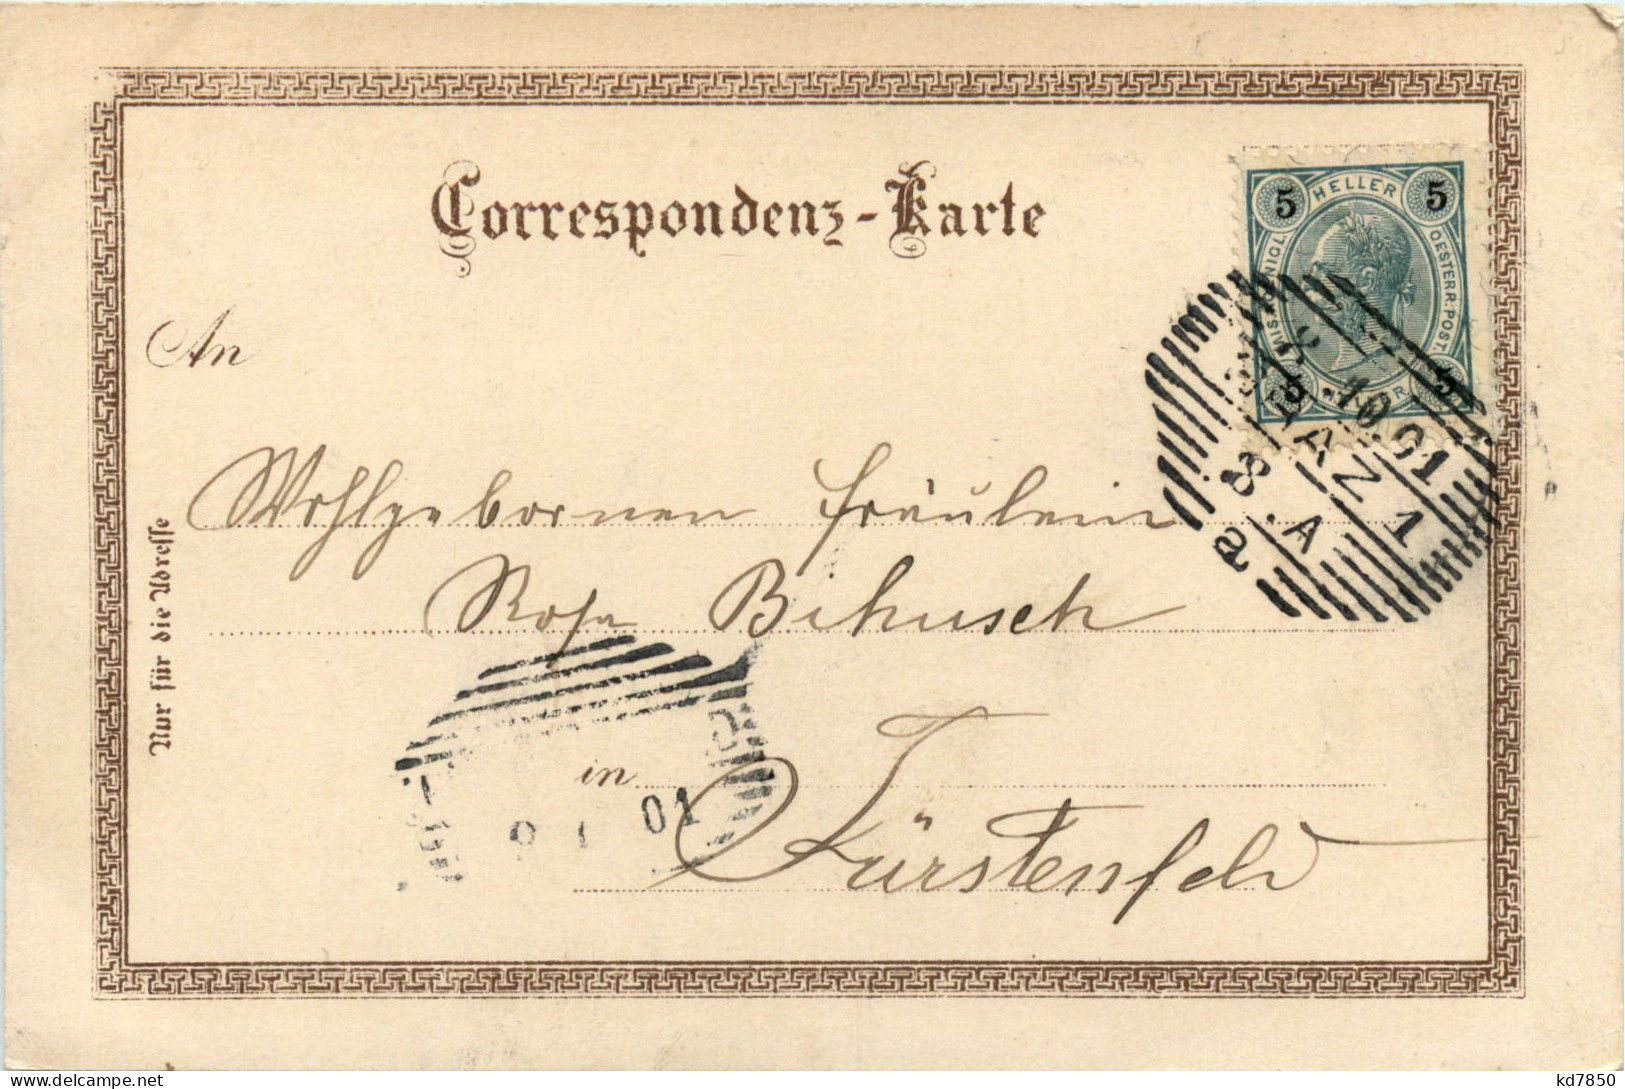 Correspondenz-Karte
5 HELLER 5
KAIS. KÖNIGL. OESTERR. POST.
5 HELLER 5
GRAZ 1
8.10.01
8.A
a
An
Wohlgebornen Fräulein
Rosa Bihusch
in
Fürstenfeld
01
Nur für die Adresse
kd7850